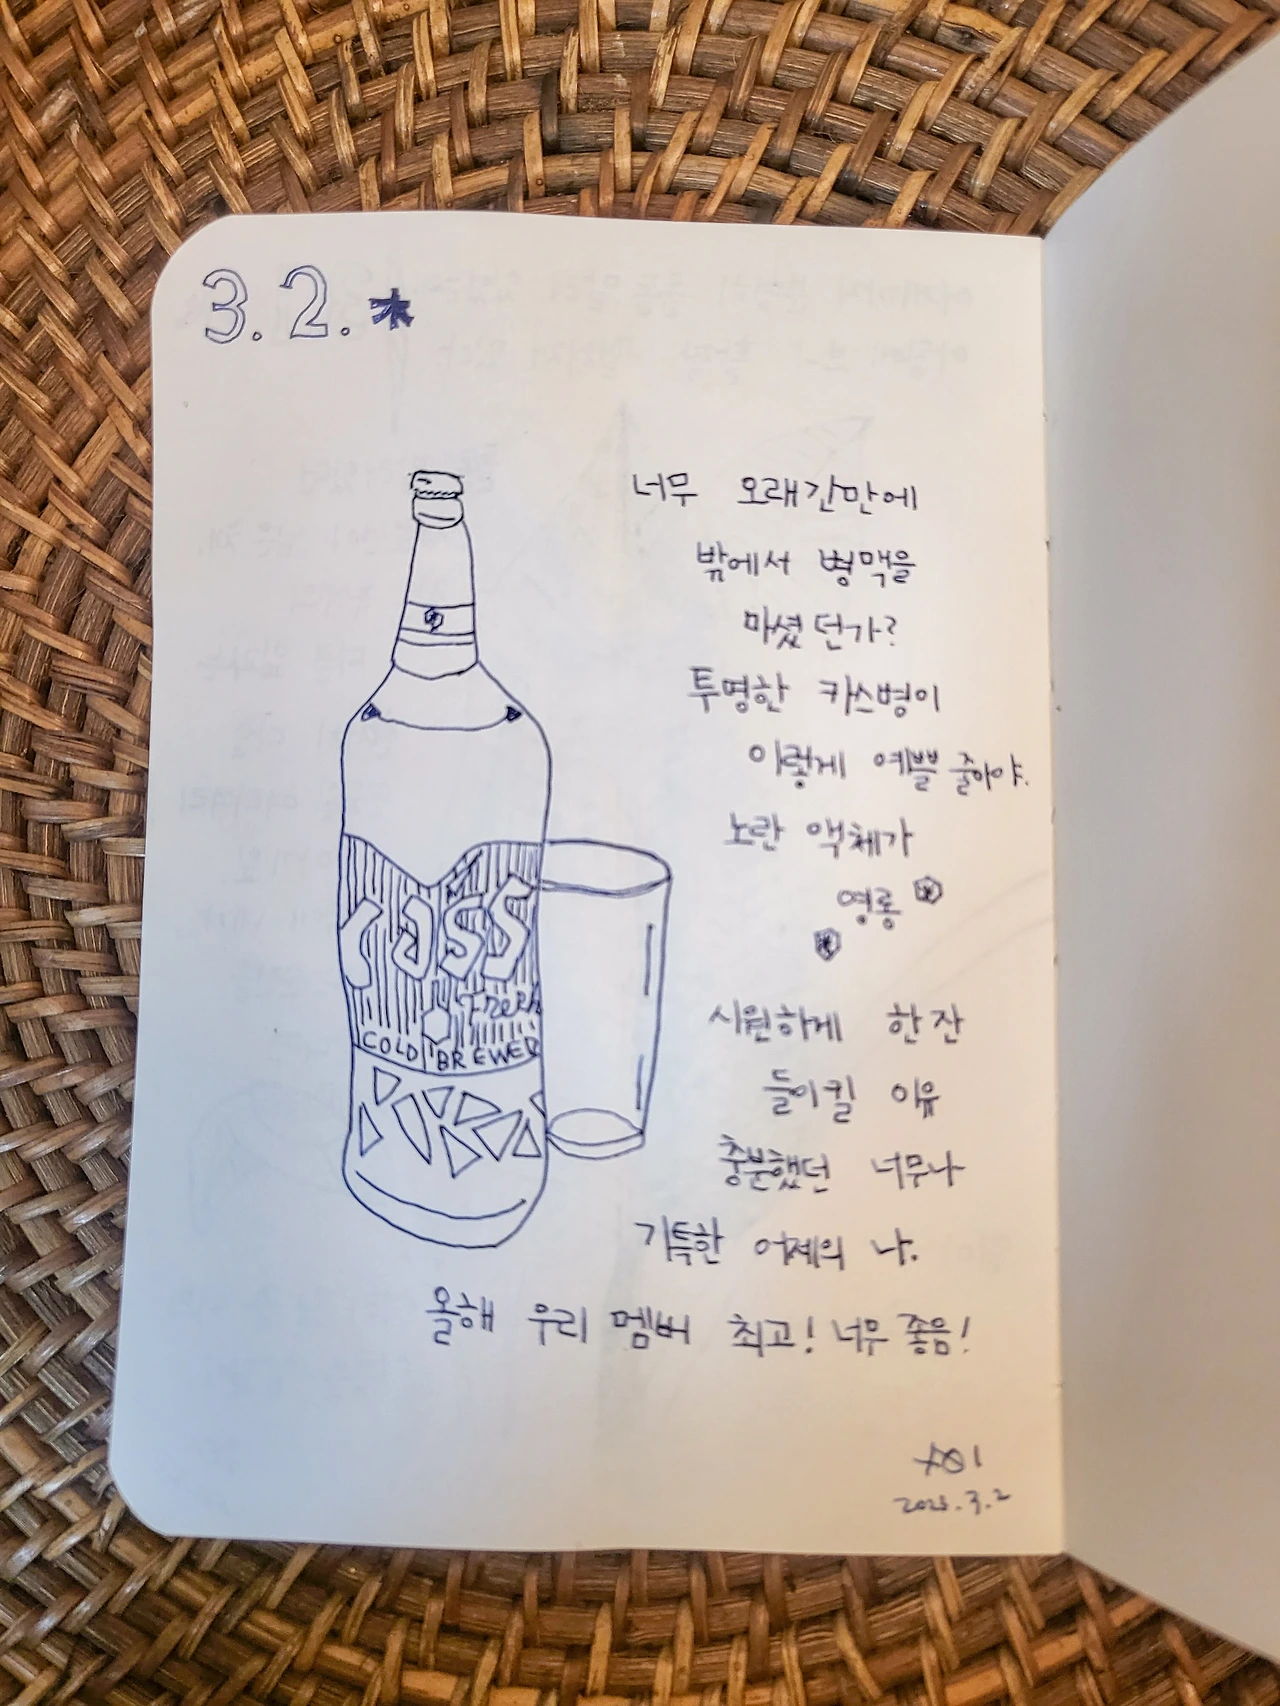 3.2. 木
너무 오래간만에
밖에서 병맥을
마셨던가?
투명한 카스병이
이렇게 예쁠 줄이야.
노란 액체가
영롱
시원하게 한 잔
들이킬 이유
충분했던 너무나
기특한 어제의 나.
올해 우리 멤버 최고! 너무 좋음!
cass
Fresh
COLD BREWED
3.2